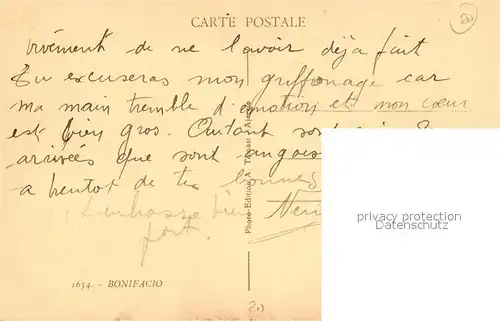 CARTE POSTALE
20
vivement de ne l'avoir déja fait
Tu excuseras mon griffonage car
ma main tremble d'emotion et mon cœur
est bien gros. Autant
arrivées que sont angois
a bientot de tes bonnes
L'embrasse bien
fort.
privacy protection
for adobestock users
Photo-Edition A.
1634. - BONIFACIO
20